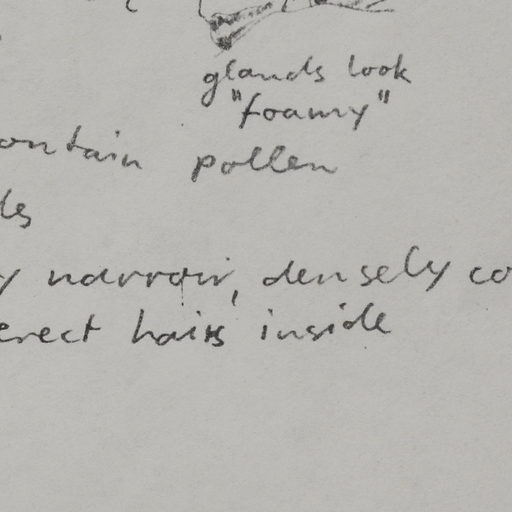 glands look
"foamy"
ontain pollen
ds
y narrow, densely co
erect hairs inside